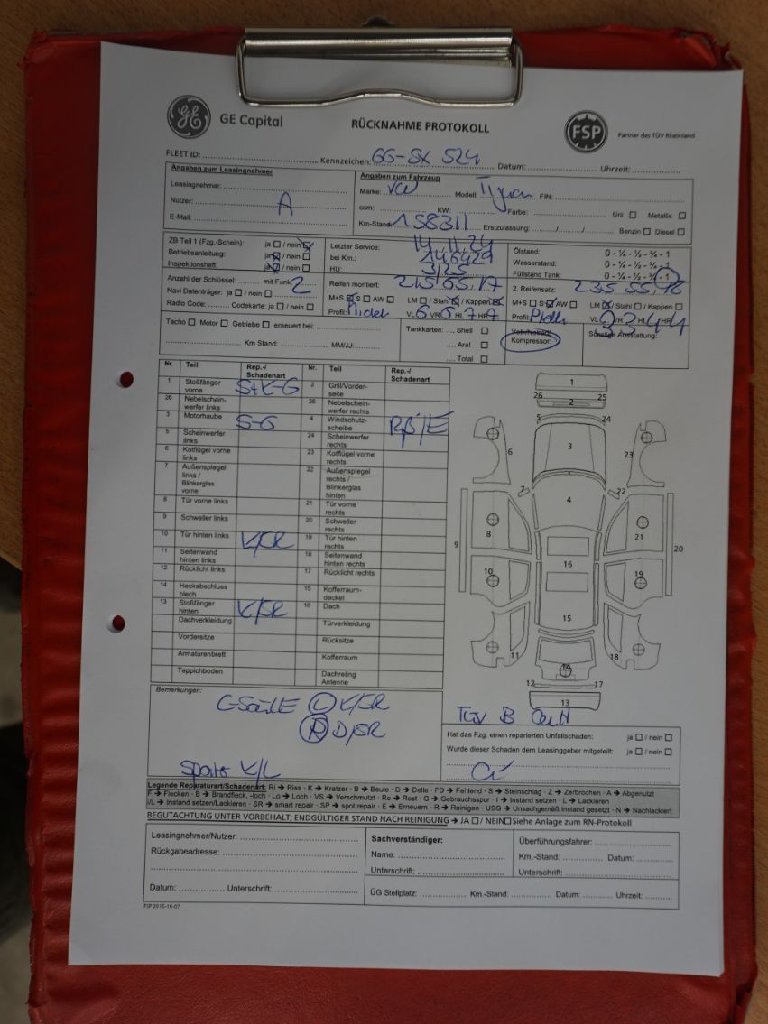 GE Capital
RÜCKNAHME PROTOKOLL
FSP
Partner des TÜV Rheinland
FLEET ID: Kennzeichen: GG-SX 524 Datum: Uhrzeit:
Angaben zum Leasingnehmer
Leasingnehmer:
Nutzer: A
E-Mail
Angaben zum Fahrzeug
Marke: VW Modell Tiguan FIN:
ccm: KW: Farbe: Uni Metallic
Km-Stand: 158311 Erstzulassung: Benzin Diesel
ZB Teil 1 (Fzg.-Schein): ja / nein
Betriebsanleitung: ja / nein
Inspektionsheft: ja / nein
Letzter Service: 14.11.24
bei Km.: 146429
HU: 3/25
Ölstand: 0 - ¼ - ½ - ¾ - 1
Wasserstand: 0 - ¼ - ½ - ¾ - 1
Füllstand Tank: 0 - ¼ - ½ - ¾ - 1
Anzahl der Schlüssel: mit Funk: 2
Navi Datenträger: ja / nein
Radio Code: Codekarte: ja / nein
Reifen montiert: 215 65 17
M+S S AW LM Stahl / Kappen
Profil:
2. Reifensatz: 235 55 18
M+S S AW LM / Stahl / Kappen
Profil:
Tacho Motor Getriebe erneuert bei:
Km Stand: MM/JJ:
Tankkarten: Shell
Aral
Total
Kompressor
Sonstige Ausstattung:
Nr. Teil Rep.-/ Schadenart Nr. Teil Rep.-/ Schadenart
1 Stoßfänger vorne S+K-G 2 Grill/Vorder-seite
26 Nebelschein-werfer links 25 Nebelschein-werfer rechts
3 Motorhaube S-G 4 Windschutz-scheibe
5 Scheinwerfer links 24 Scheinwerfer rechts
6 Kotflügel vorne links 23 Kotflügel vorne rechts
7 Außenspiegel links / Blinkerglas vorne 22 Außenspiegel rechts / Blinkerglas hinten
8 Tür vorne links 21 Tür vorne rechts
9 Schweller links 20 Schweller rechts
10 Tür hinten links K/SR 19 Tür hinten rechts
11 Seitenwand hinten links 18 Seitenwand hinten rechts
12 Rücklicht links 17 Rücklicht rechts
14 Heckabschluss blech 15 Kofferraum-deckel
13 Stoßfänger hinten K/SR 16 Dach
Dachverkleidung Türverkleidung
Vordersitze Rücksitze
Armaturenbrett Kofferraum
Teppichboden Dachreling Antenne
Bemerkungen:
C-Säule L K/SR
R D/SR
K/L
TÜV B
Hat das Fzg. einen reparierten Unfallschaden: ja / nein
Wurde dieser Schaden dem Leasinggeber mitgeteilt: ja / nein
Legende Reparaturart/Schadenart: RI → Riss - K → Kratzer - B → Beule - D → Delle - FD → Fehlend - S → Steinschlag - Z → Zerbrochen - A → Abgenutzt
F → Flecken - E → Brandfleck, -loch - LO → Loch - VS → Verschmutzt - Ro → Rost - G → Gebrauchsspur - I → Instand setzen - L → Lackieren
I/L → Instand setzen/Lackieren - SR → smart repair - SP → spot repair - E → Erneuern - R → Reinigen - USG → Unsachgemäß Instand gesetzt - N → Nachlackiert
BEGUTACHTUNG UNTER VORBEHALT, ENDGÜLTIGER STAND NACH REINIGUNG → JA / NEIN Siehe Anlage zum RN-Protokoll
Leasingnehmer/Nutzer:
Rückgabeadresse:
Datum: Unterschrift:
Sachverständiger:
Name:
Unterschrift:
Überführungsfahrer:
Km.-Stand: Datum:
Unterschrift:
ÜG Stellplatz: Km.-Stand: Datum: Uhrzeit: